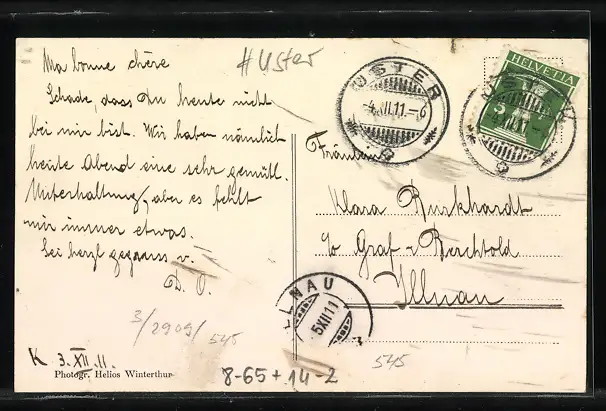 Ma bonne chère
Schade, dass Du heute nicht
bei mir bist. Wir haben nämlich
heute Abend eine sehr gemütl.
Unterhaltung, aber es fehlt
mir immer etwas.
Sei herzl gegrüsst v.
D. O.
3/2909/ 545
K 3.XII.11.
Photogr. Helios Winterthur
#Uster
USTER
-4.XII.11.-6
HELVETIA
5
Fräulein
Klara Burkhardt
c/o Graf-Berchtold
Illnau
ILLNAU
5XII11
545
8-65+14-2